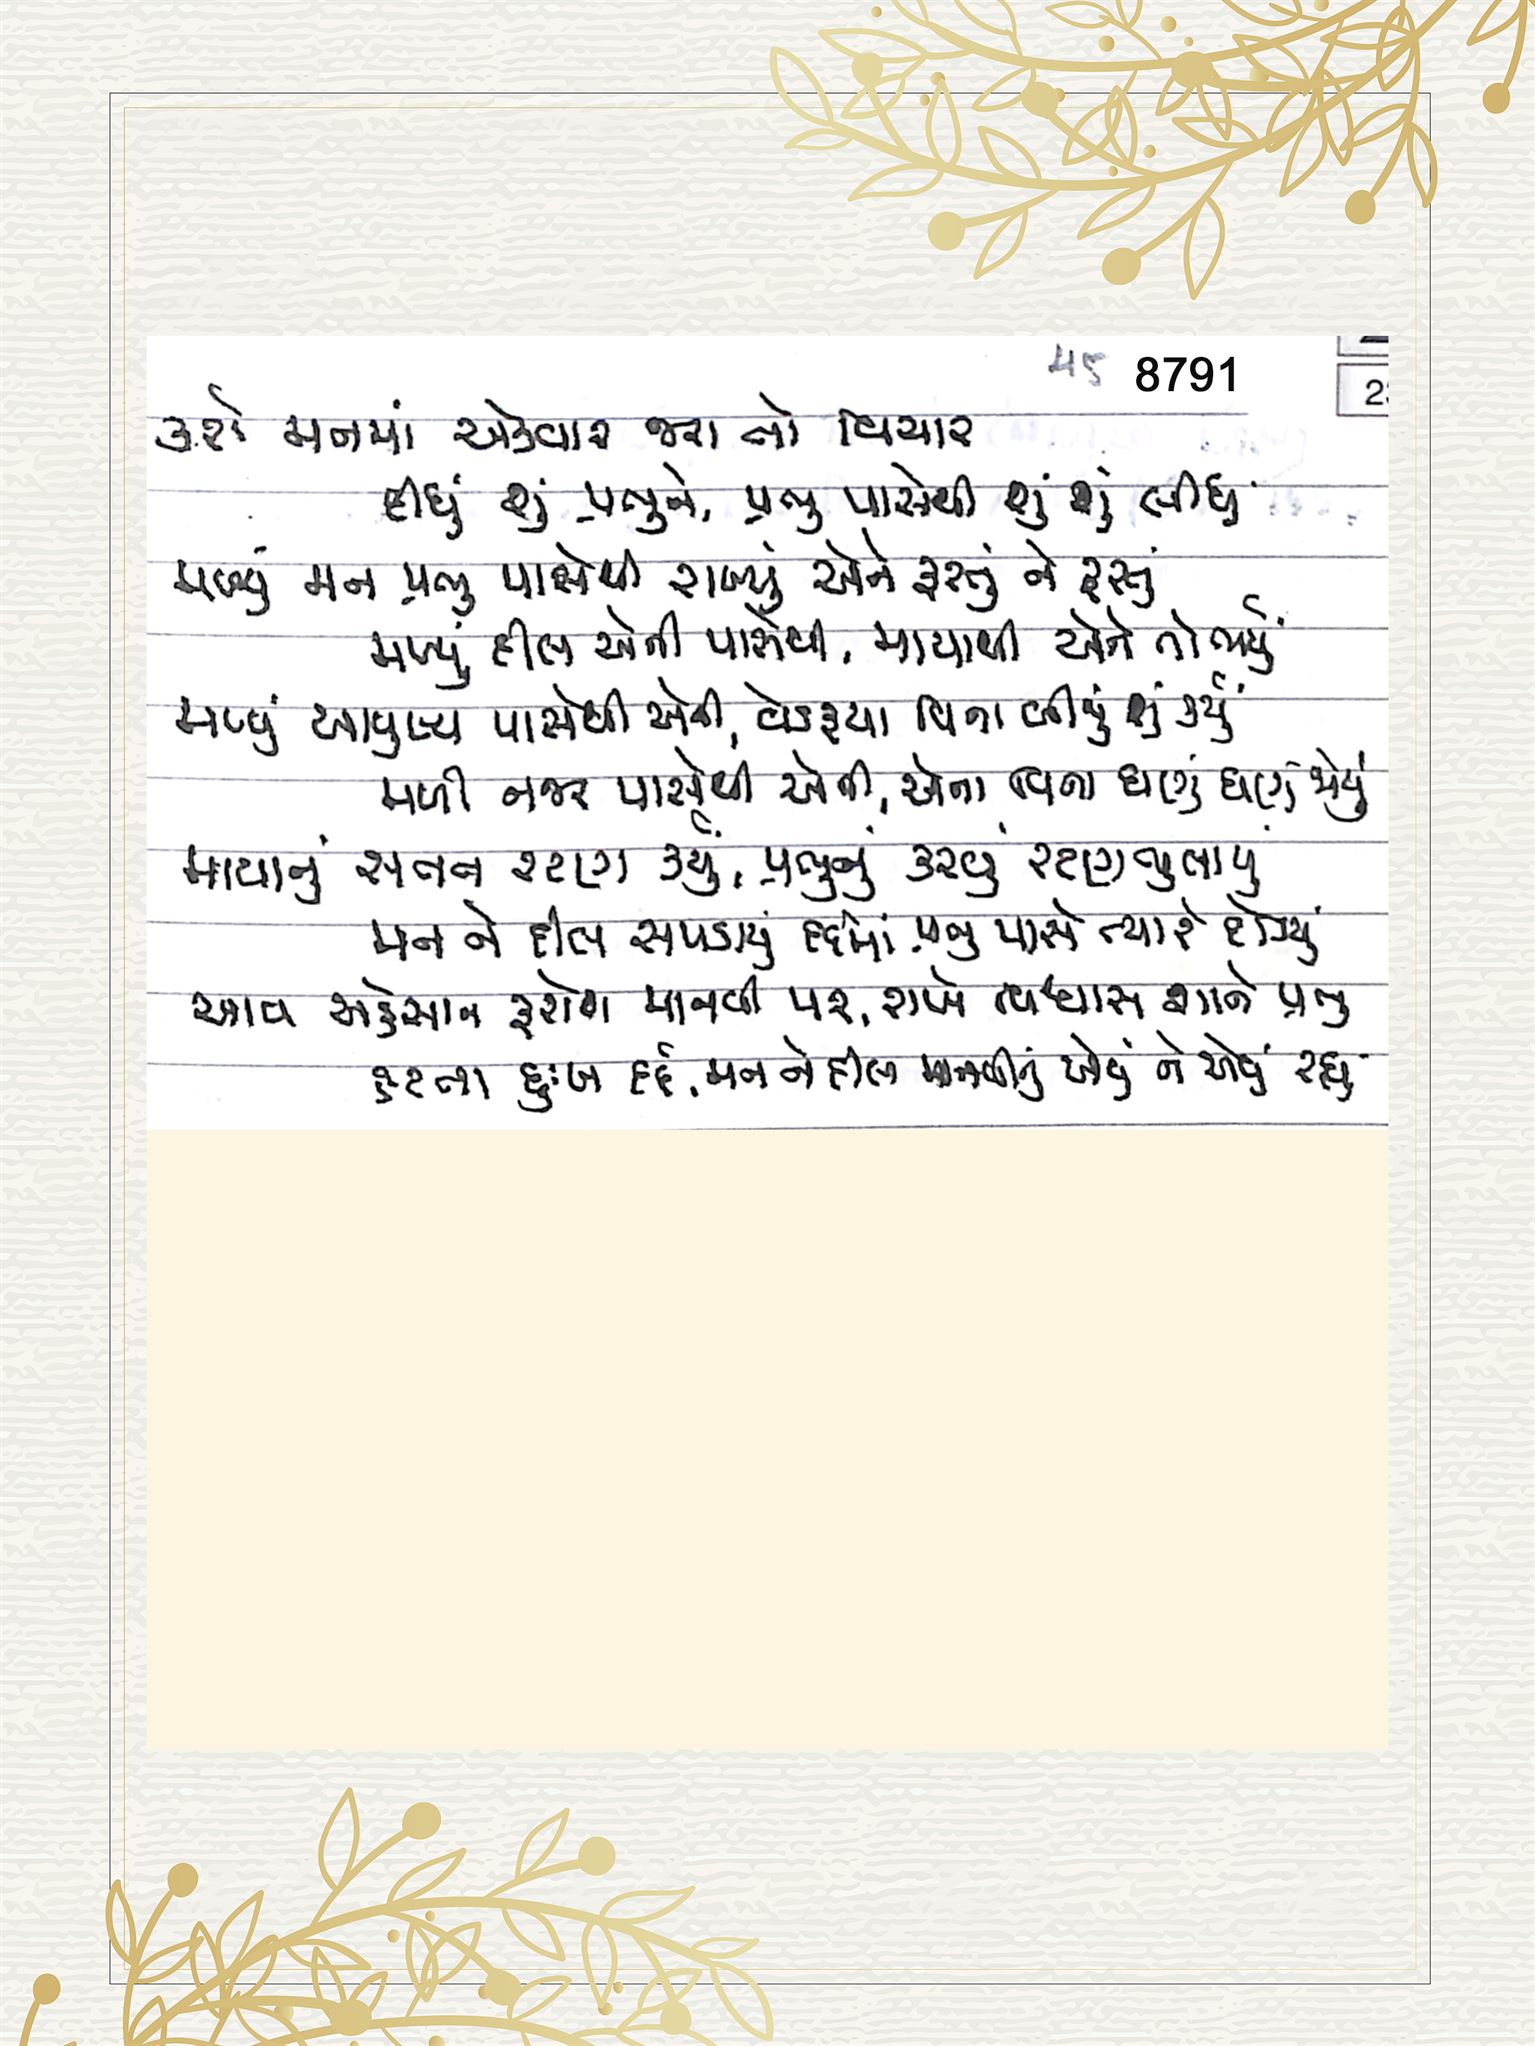 ૫૬ 8791
2
કરશે મનમાં એકવાર જરા તો વિચાર
દીધું શું પ્રભુને, પ્રભુ પાસેથી શું શું લીધું
મળ્યું મન પ્રભુ પાસેથી રાખ્યું એને ફરતું ને ફરતું
મળ્યું દીલ એની પાસેથી, માયાથી એને તો ભર્યું
મળ્યું આયુષ્ય પાસેથી એની, વેડફયા વિના બીજું શું કર્યું
મળી નજર પાસેથી એની, એના વિના ઘણું ઘણું જોયું
માયાનું સતત રટણ કર્યું, પ્રભુનું કરવું રટણ ભુલાયું
મન ને દીલ સપડાયું દર્દમાં પ્રભુ પાસે ત્યારે દોડયું
આવા અહેસાન ફરોશ માનવી પર, રાખે વિશ્વાસ શાને પ્રભુ
હટતા દુઃખ દર્દ, મન ને દીલ માનવીનું એવું ને એવું રહ્યું